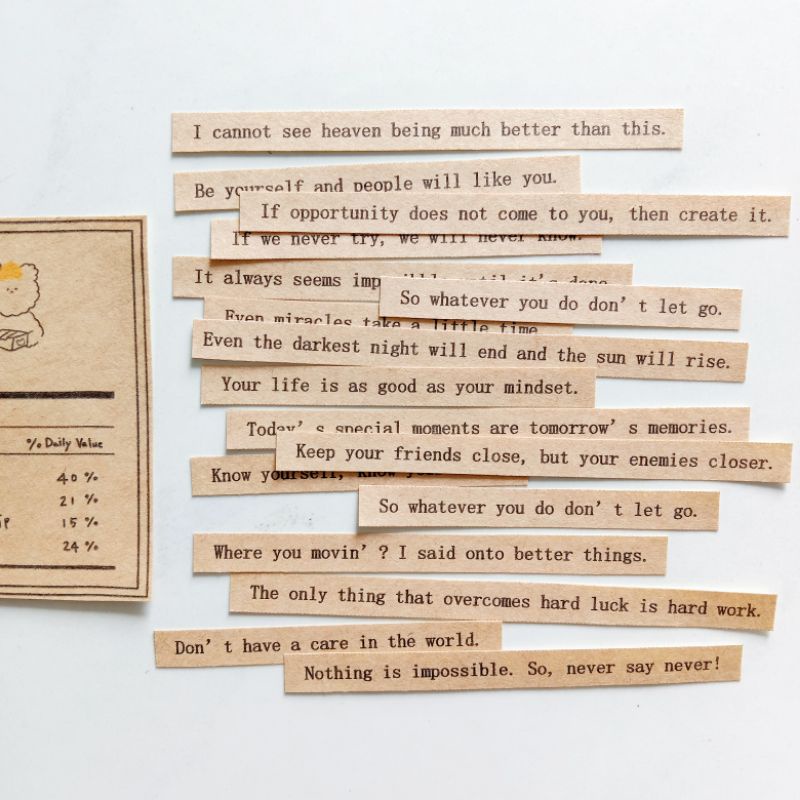 I cannot see heaven being much better than this.
Be yourself and people will like you.
If opportunity does not come to you, then create it.
If we never try, we will never know.
It always seems until it's done
So whatever you do don't let go.
Even miracles take a little time
Even the darkest night will end and the sun will rise.
Your life is as good as your mindset.
Today's special moments are tomorrow's memories.
Keep your friends close, but your enemies closer.
Know yourself, know
So whatever you do don't let go.
Where you movin'? I said onto better things.
The only thing that overcomes hard luck is hard work.
Don't have a care in the world.
Nothing is impossible. So, never say never!
% Daily Value
40 %
21 %
15 %
24 %